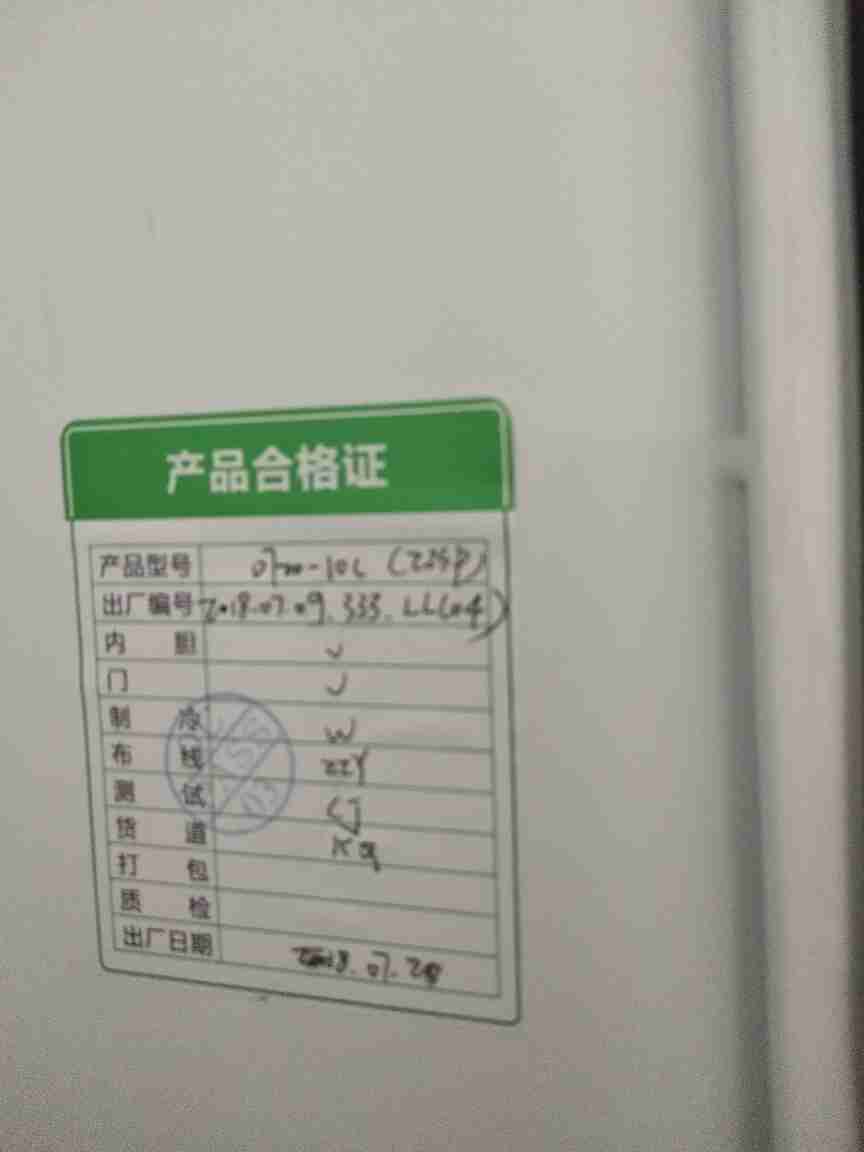 产品合格证
产品型号
出厂编号 2018.07.09.333.LLC04)
内胆 ✓
门 ✓
制冷 W
布线 ZZY
测试 CJ
货道
打包
质检
出厂日期 2018.07.28